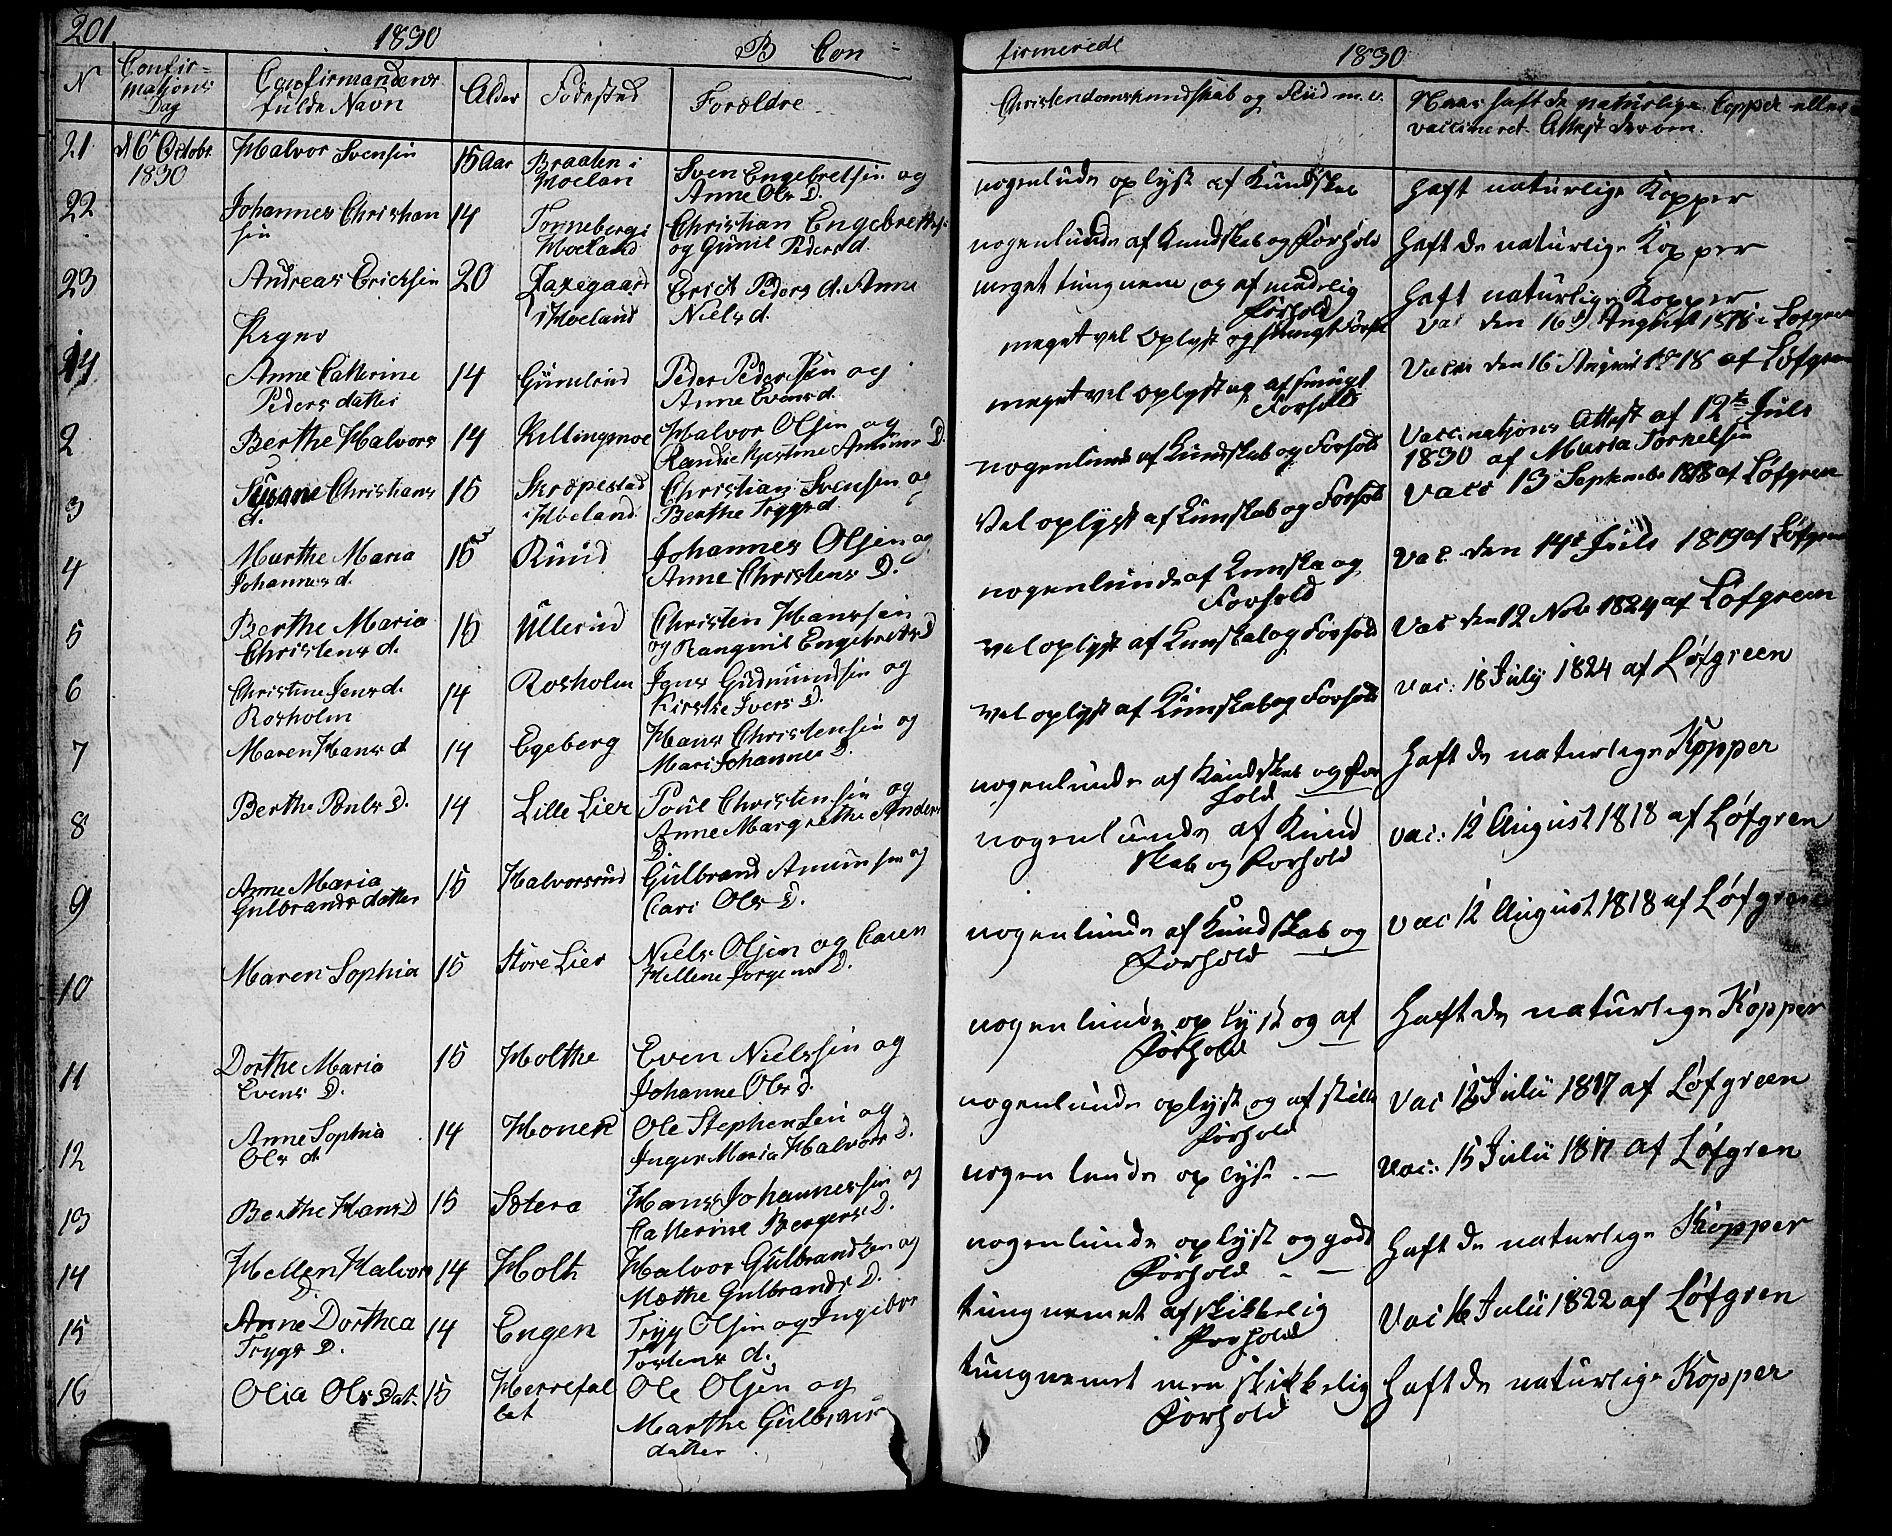 201
1830
B Con
firmerede
1830
N
Confir-
mations
Dag
Confirmandens
fulde Navn
Alder
Fødested
Forældre
Christendomskundskab og Flid m.v.
Naar haft de naturlige Copper eller
vaccineret. Attest derom.
21
d 6 Octobr
1830
Halvor Svensen
15 Aar
Braaten i
Høeland
Sven Engebretsen og
Anne Ols D.
nogenlunde oplyst af Kundskab
haft naturlige Kopper
22
Johannes Christian
sen
14
Tønneberg i
Høeland
Christian Engebretts
og Gunil Peders d.
nogenlunde af Kundskab og Forhold
haft de naturlige Kopper
23
Andreas Ericksen
20
Laxegaard
i Høeland
Erick Peders d. Anne
Niels d.
meget tungnem og af
Forhold
haft naturlige Kopper
Piger
meget vel oplyst og
Vac den 16 August 1818 Løfgren
1
14
Anne Catterine
Peders datter
14
Peder Pedersen og
Anne Evens d.
meget vel oplyst og af
Forhold
Vacc den 16 August 1818 af Løfgren
2
Berthe Halvors
14
Killingmoe
Halvor Olsen og
Randie Kjestine Amuns D.
nogenlunde af Kundskab og Forhold
Vaccinations Attest af 12te Juli
1830 af Maria Torkelsen
3
Susane Christians
d.
15
Skrepestad
i Høeland
Christian Svensen og
Berthe Trygs d.
Vel oplyst af Kunskab og Forhold
Vacc 13 September 1818 af Løfgren
4
Marthe Maria
Johannes d.
15
Ruud
Johannes Olsen og
Anne Christens D.
nogenlunde af Kunska og
Forhold
Vac den 14 Juli 1819 af Løfgren
5
Berthe Maria
Christens d.
15
Ullerud
Christen Hanssen
og Rangnil Engebrets D
vel oplyst af Kunskab og Forhold
Vac den 12 Nov 1824 af Løfgreen
6
Christine Jens d.
Rosholm
14
Rosholm
Jens Gudmundsen og
Kirstie Ivers D.
vel oplyst af Kunskab og Forhold
vac: 18 July 1824 af Løfgreen
7
Maren Hans d
14
Egeberg
Hans Christensen og
Mari Johannes D.
nogenlunde af Kundskab og For
hold
haft de naturlige Kopper
8
Berthe Pouls D.
14
Lille Lier
Poul Christensen og
Anne Margrethe Anders
D.
nogenlunde af Kund
skab og Forhold
vac: 12 August 1818 af Løfgren
9
Anne Maria
Gulbrands datter
15
Halvorsrud
Gulbrand Amunsen og
Cari Ols D.
nogenlunde af Kundskab og
Forhold
vac 12 August 1818 af Løfgren
10
Maren Sophia
15
Store Lier
Niels Olsen og Caren
Hellene Jørgens D.
nogenlunde oplyst og af
Forhold
haft de naturlige Kopper
11
Dorthe Maria
Evens D.
15
Holthe
Even Nielssen og
Johanne Ols D
nogenlunde oplyst og af skik
Forhold
vac 12 Julii 1817 af Løfgreen
12
Anne Sophia
Ols d.
14
Honer
Ole Stephensen og
Inger Maria Halvors D.
nogenlunde oplyst. —
vac: 15 Julii 1817 af Løfgren
13
Berthe Hans D
15
Sætera
Hans Johannessen og
Catterine Bergers D.
nogenlunde oplyst og godt
Forhold
haft de naturlige Kopper
14
Hellen Halvors
D.
14
Holt
Halvor Gulbrandsen og
Mæthe Gulbrands D.
tungnemet af skikkelig
Forhold
Vac 16 Julii 1822 af Løfgren
15
Anne Dorthea
Trygs D.
14
Engen
Tryg Olsen og Ingebor
Tostens d.
tungnemet men skikkelig
Forhold
haft de naturlige Kopper
16
Olia Ols Dat.
15
Herrefal
let
Ole Olsen og
Marthe Gulbrans
datter